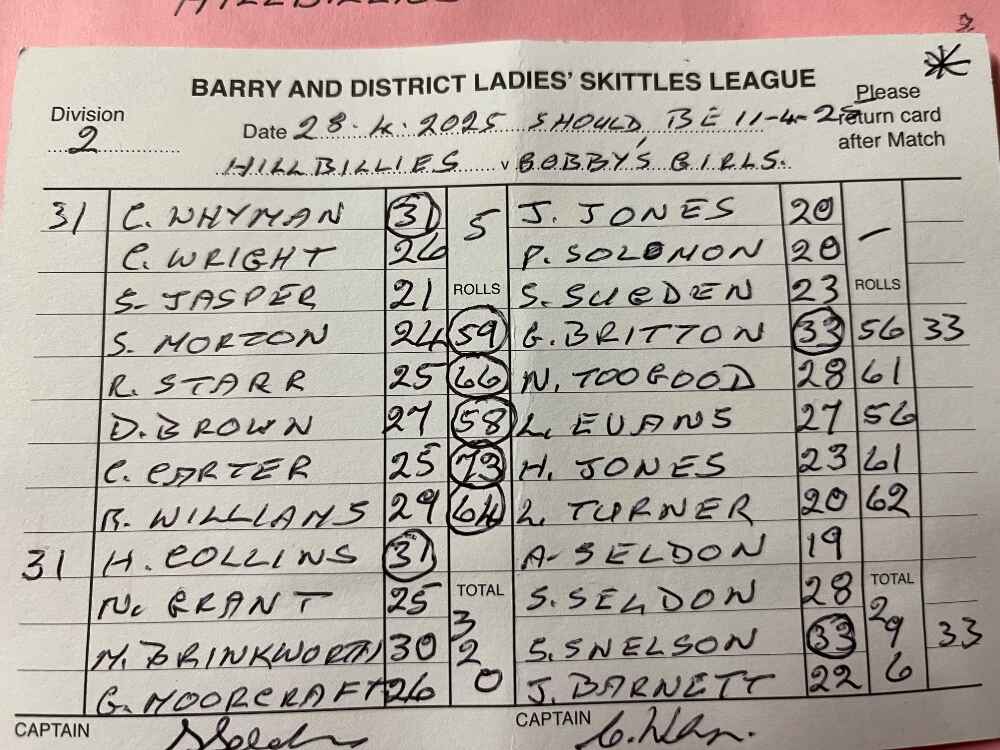 HILLBILLIES
BARRY AND DISTRICT LADIES' SKITTLES LEAGUE
Division 2
Date 28.4.2025 SHOULD BE 11-4-25
Please return card after Match
HILLBILLIES v BOBBY'S GIRLS.
31 C. WHYMAN 31 5 J. JONES 20 —
C. WRIGHT 26 P. SOLOMON 20
S. JASPER 21 ROLLS S. SUGDEN 23 ROLLS
S. MORTON 24 59 G. BRITTON 33 56 33
R. STARR 25 66 N. TOOGOOD 28 61
D. BROWN 27 58 L. EVANS 27 56
C. CARTER 25 73 H. JONES 23 61
R. WILLIAMS 29 64 L. TURNER 20 62
31 H. COLLINS 31 A. SELDON 19
N. GRANT 25 TOTAL S. SELDON 28 TOTAL
M. BRINKWORTH 30 320 S. SNELSON 33 296 33
G. MOORCRAFT 26 J. BARNETT 22
CAPTAIN CAPTAIN